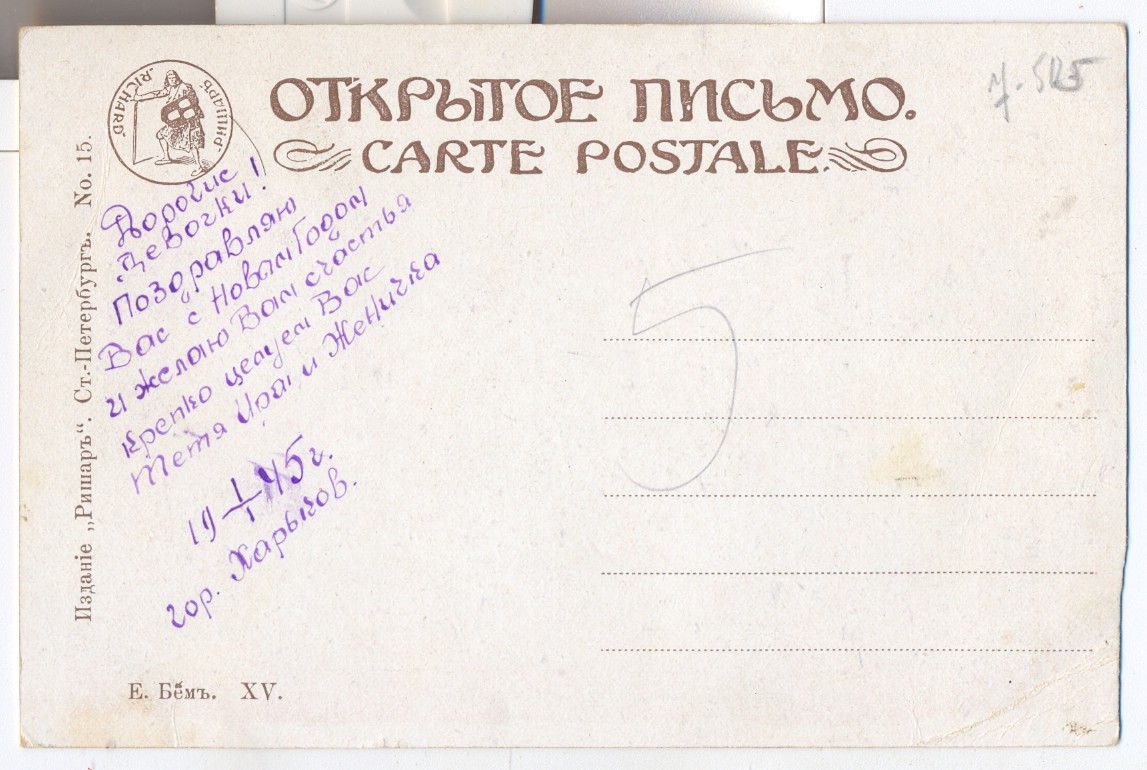 "RICHARD" "РИШАРЪ"
ОТКРЫТОЕ ПИСЬМО.
CARTE POSTALE
Дорогие
девочки!
Поздравляю
Вас с Новым Годом
и желаю Вам счастья
Крепко целуем Вас
Тетя Ира и Женичка
19 1/1 45 г.
гор. Харьков.
5
Изданіе „Ришаръ“. Ст.-Петербургъ. No. 15.
Е. Бёмъ. XV.